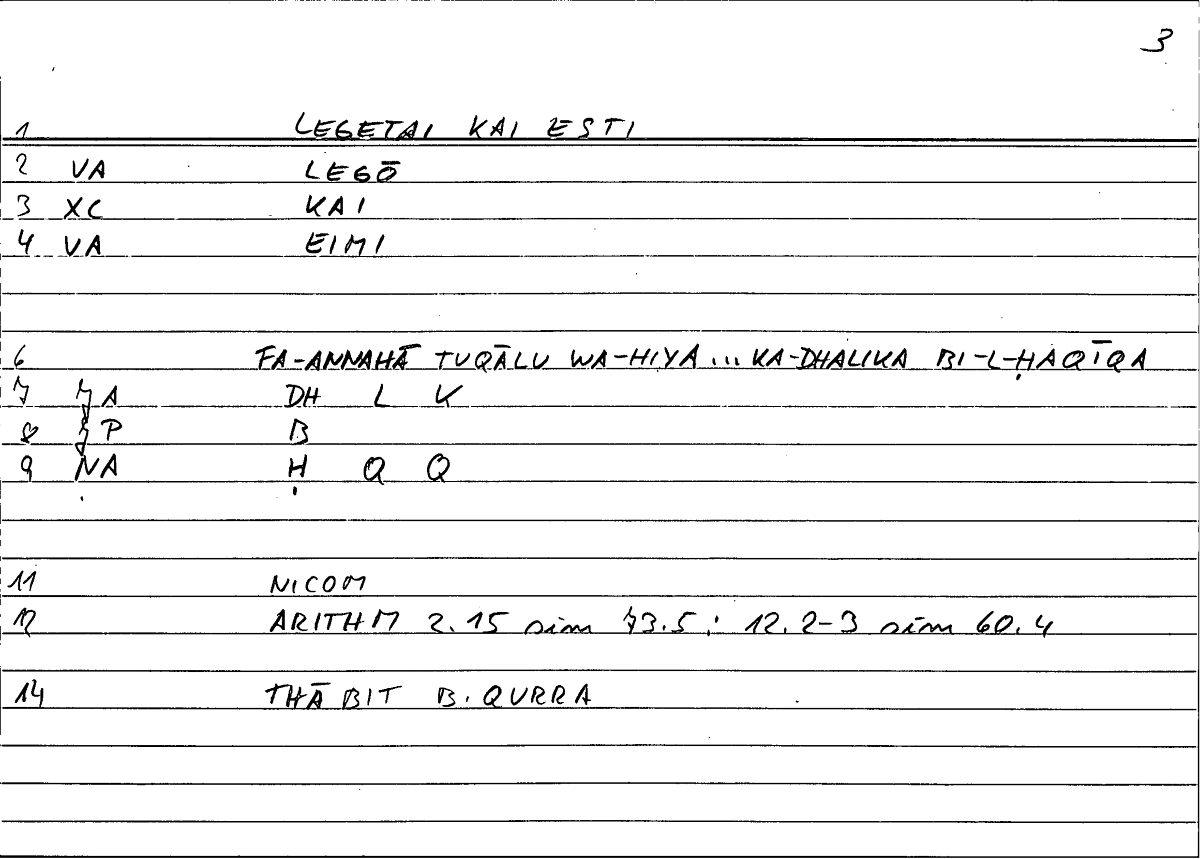 3
1 LEGETAI KAI ESTI
2 VA LEGŌ
3 XC KAI
4 VA EIMI
6 FA-ANNAHĀ TUQĀLU WA-HIYA ... KA-DHALIKA BI-L-ḤAQĪQA
7 JA DH L K
8 JP B
9 NA Ḥ Q Q
11 NICOM
12 ARITHM 2.15 sim 73.5 : 12.2-3 sim 60.4
14 THĀBIT B. QURRA